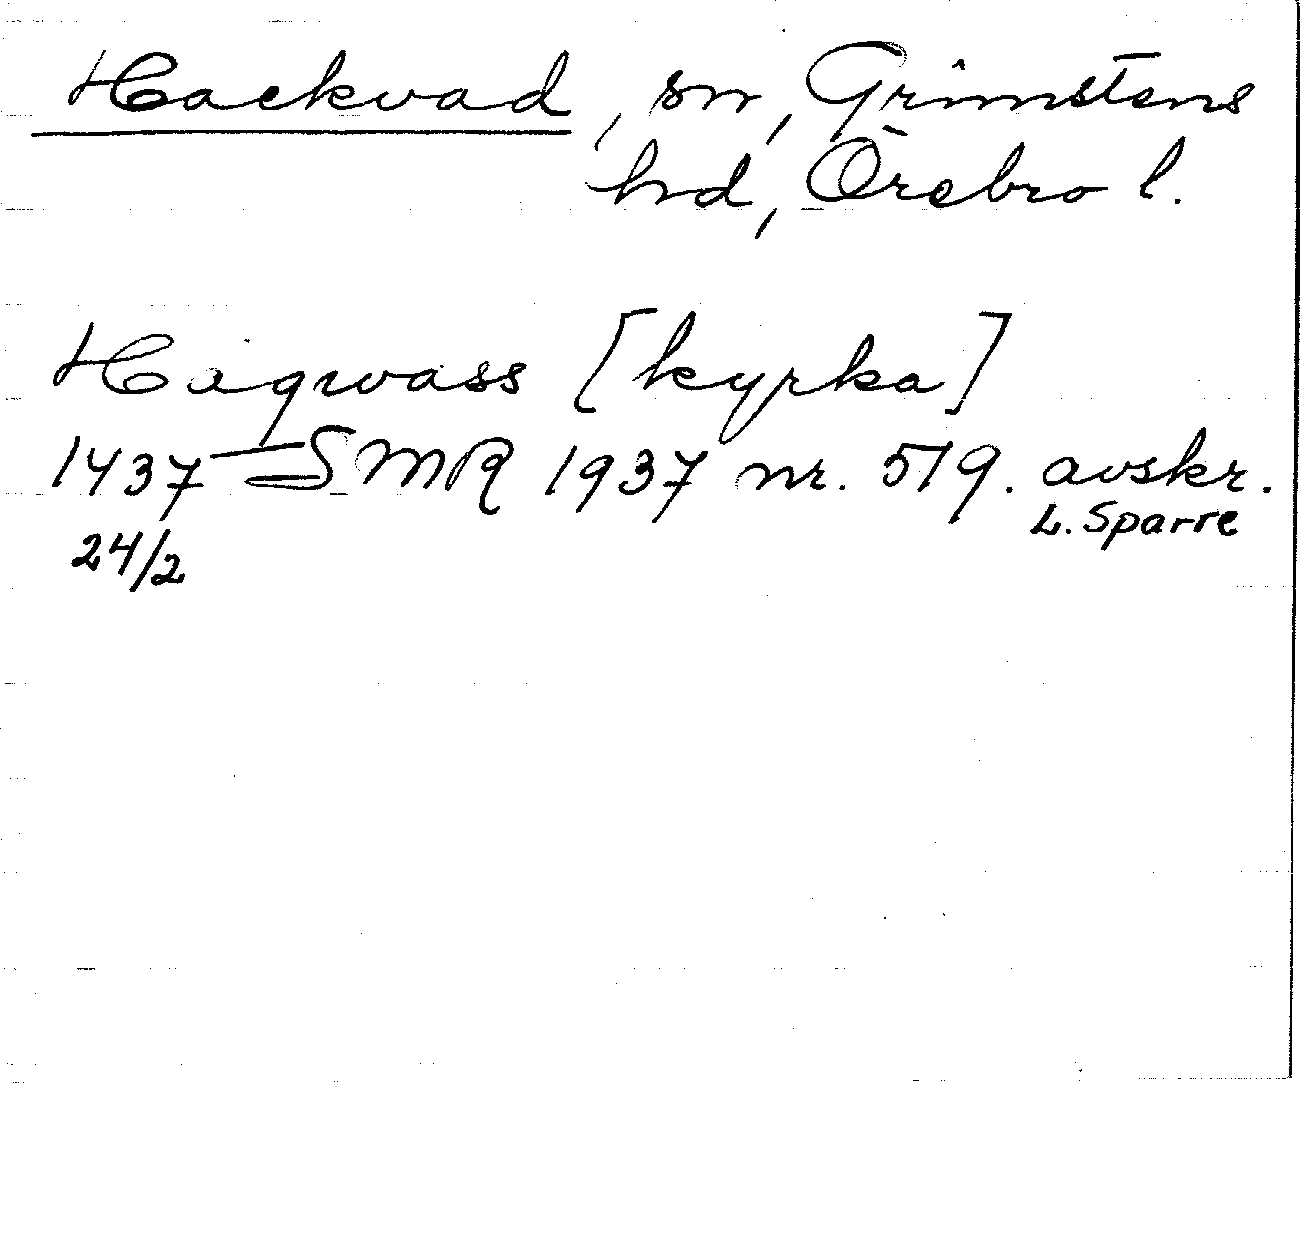 Hackvad, sn, Grimstens
hd, Örebro l.
Haqwass [kyrka]
1437 — SMR 1937 nr. 519. avskr.
24/2 L. Sparre